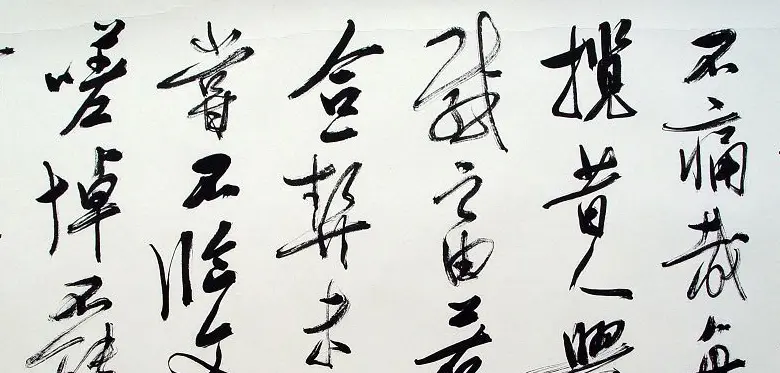 不痛哉每
揽昔人興
感之由若
合契未
嘗不临文
嗟悼不能